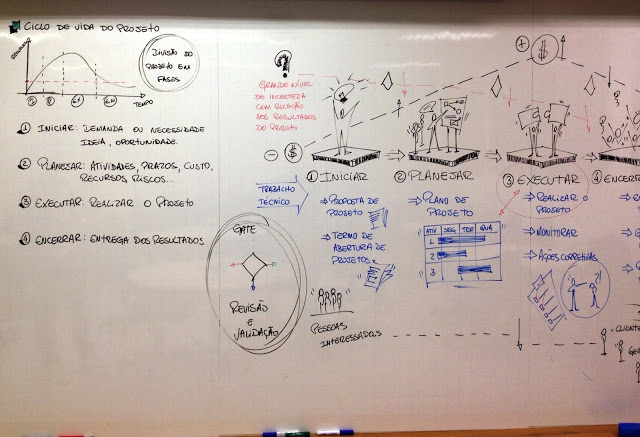 CICLO DE VIDA DO PROJETO
DIVISÃO DO
PROJETO EM
FASES
TEMPO
① INICIAR: DEMANDA OU NECESSIDADE
IDEIA, OPORTUNIDADE.
② PLANEJAR: ATIVIDADES, PRAZOS, CUSTO,
RECURSOS, RISCOS...
③ EXECUTAR: REALIZAR O PROJETO
④ ENCERRAR: ENTREGA DOS RESULTADOS
?
GRANDE NÍVEL
DE INCERTEZA
COM RELAÇÃO
AOS RESULTADOS
DO PROJETO
- $
+ $
TRABALHO
TÉCNICO
① INICIAR
⇒ PROPOSTA DE
PROJETO
⇒ TERMO DE
ABERTURA DE
PROJETOS
PESSOAS
INTERESSADAS
② PLANEJAR
⇒ PLANO DE
PROJETO
ATIV SEG TER QUA
1
2
3
③ EXECUTAR
⇒ REALIZAR O
PROJETO
⇒ MONITORAR
⇒ AÇÕES CORRETIVAS
④ ENCERR
CLIENTE
GATE
REVISÃO
E
VALIDAÇÃO